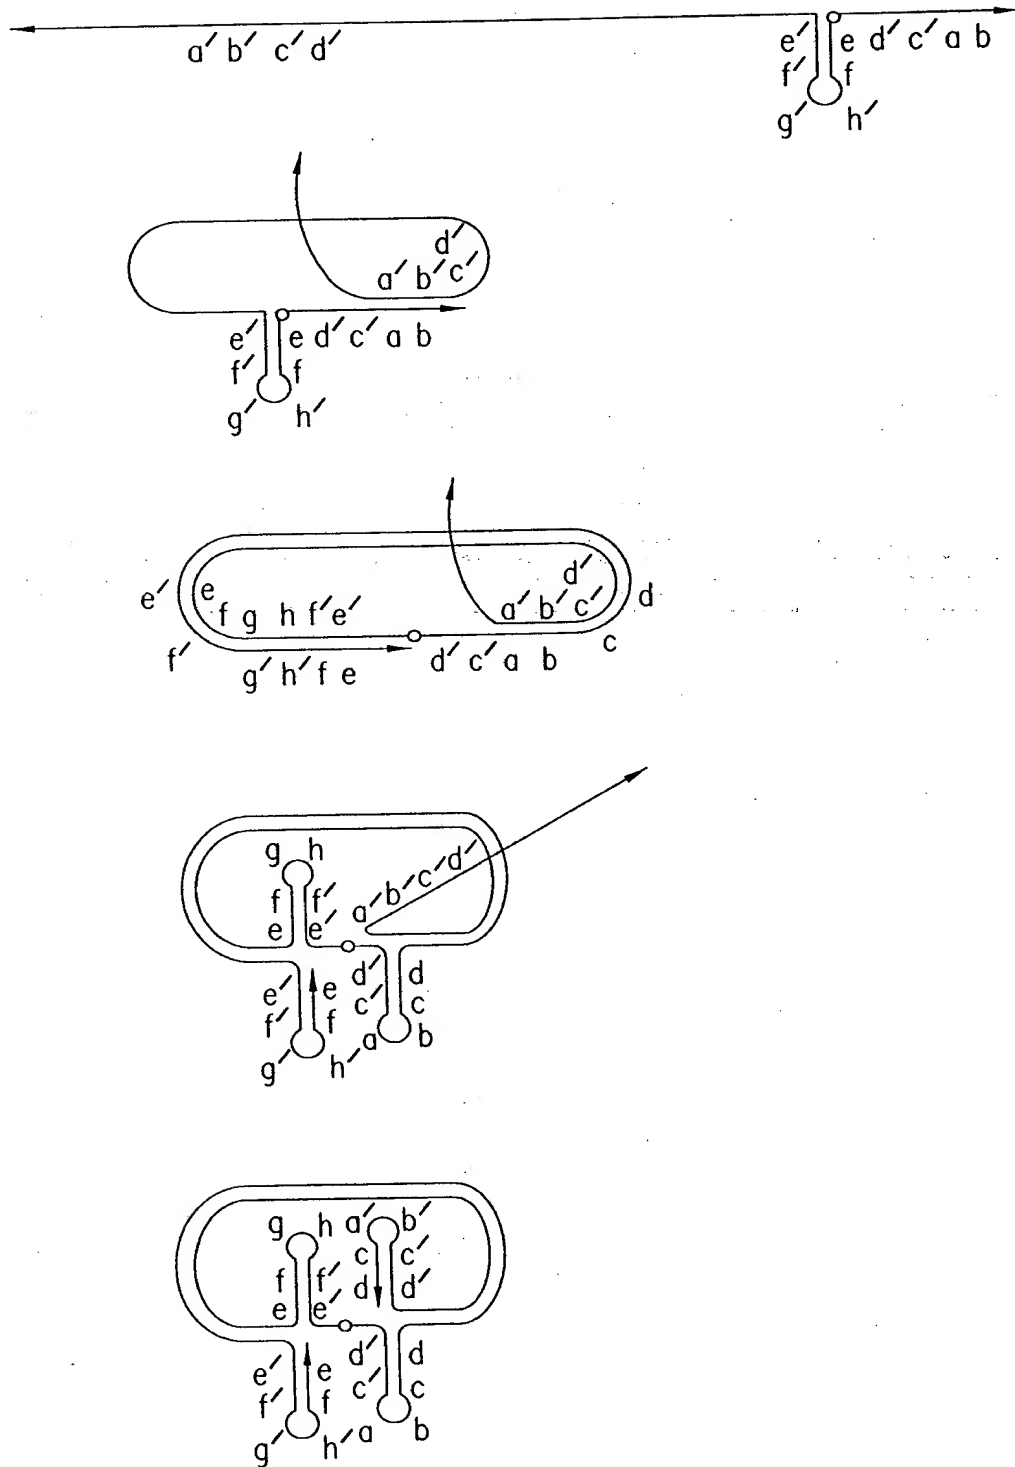 a′ b′ c′ d′
e′ e d′ c′ a b
f′ f
g′ h′
d′
a′ b′ c′
e′ e d′ c′ a b
f′ f
g′ h′
e′ e d′ d
f g h f′ e′ a′ b′ c′
f′ d′ c′ a b c
g′ h′ f e
g h
f f′ a′ b′ c′ d′
e e′
e′ e d′ d
f′ f c′ c
g′ h′ a b
g h a′ b′
f f′ c c′
e e′ d d′
e′ e d′ d
f′ f c′ c
g′ h′ a b